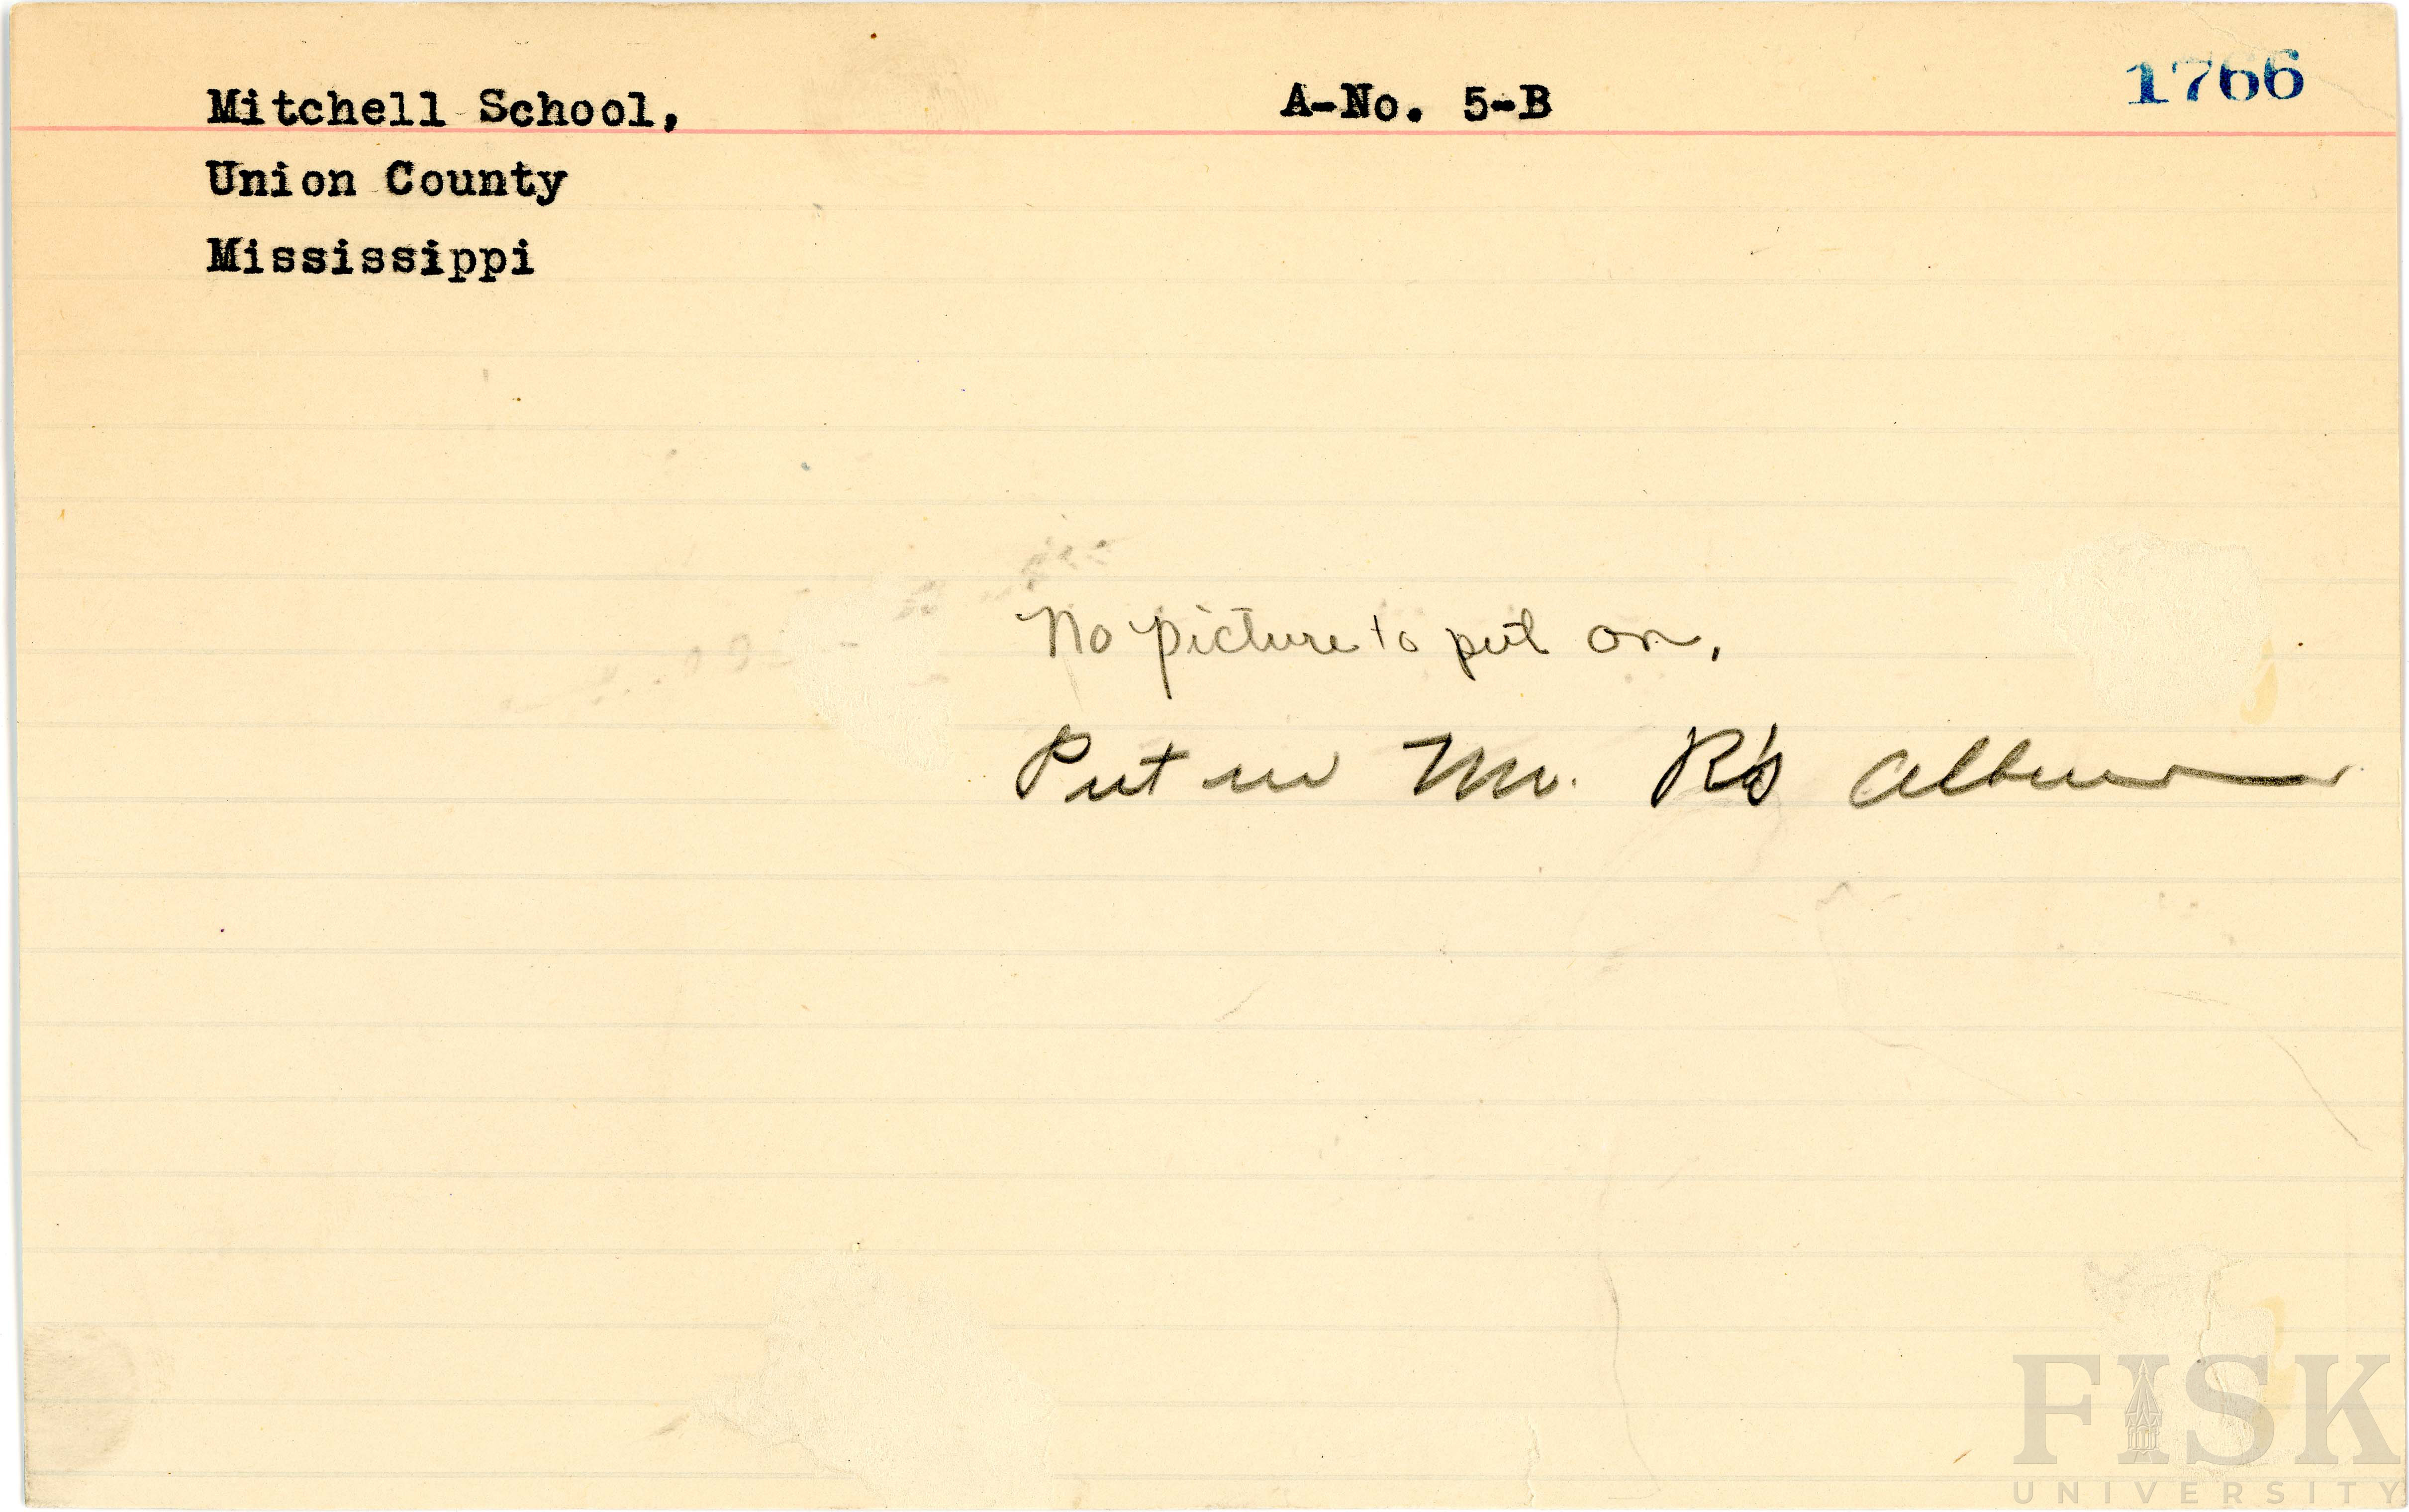 Mitchell School,
A-No. 5-B
1766
Union County
Mississippi
No picture to put on.
Put in Mr. R's album
FISK
UNIVERSITY